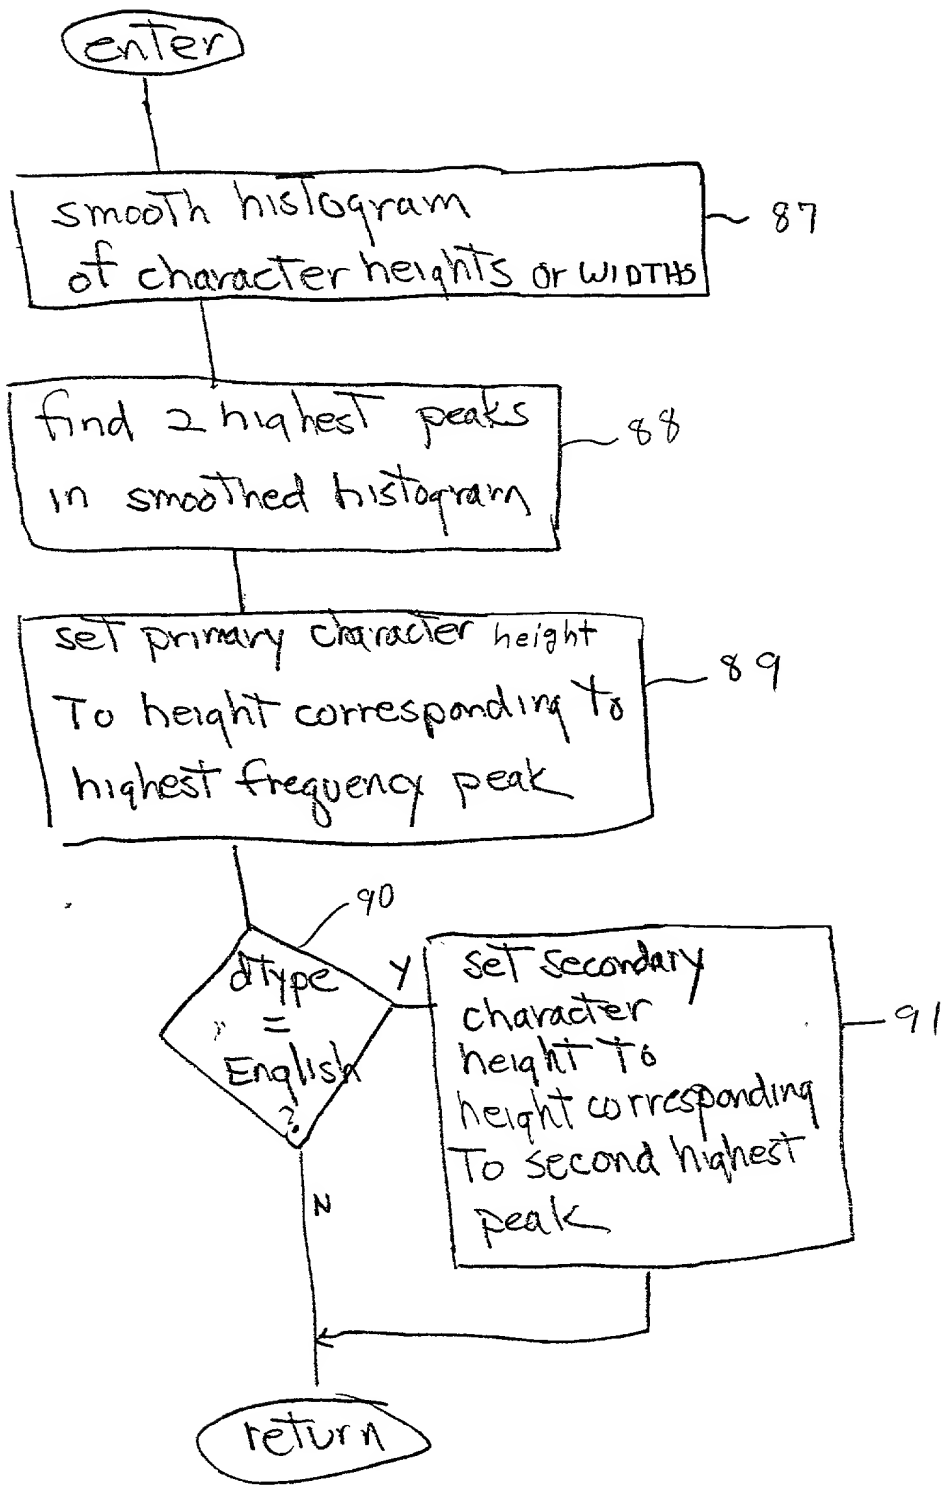 enter
smooth histogram
of character heights or WIDTHS
87
find 2 highest peaks
in smoothed histogram
88
set primary character height
To height corresponding to
highest frequency peak
89
90
dType
=
English
?
Y
N
set secondary
character
height To
height corresponding
To second highest
peak
91
return